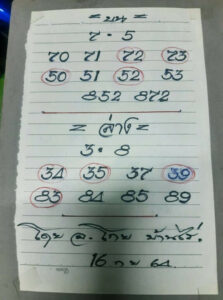 = บน =
7 - 5
70 71 72 73
50 51 52 53
852 872
= ล่าง =
3 - 8
34 35 37 39
83 84 85 89
โดย อ. โกย บ้านไร่.
16 กย 64.